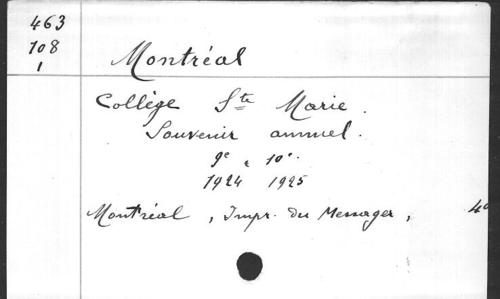 463
708
1
Montréal
Collège Ste Marie.
Souvenir annuel.
9e 10e.
1924 1925
Montréal, Impr. du Messager, 4o